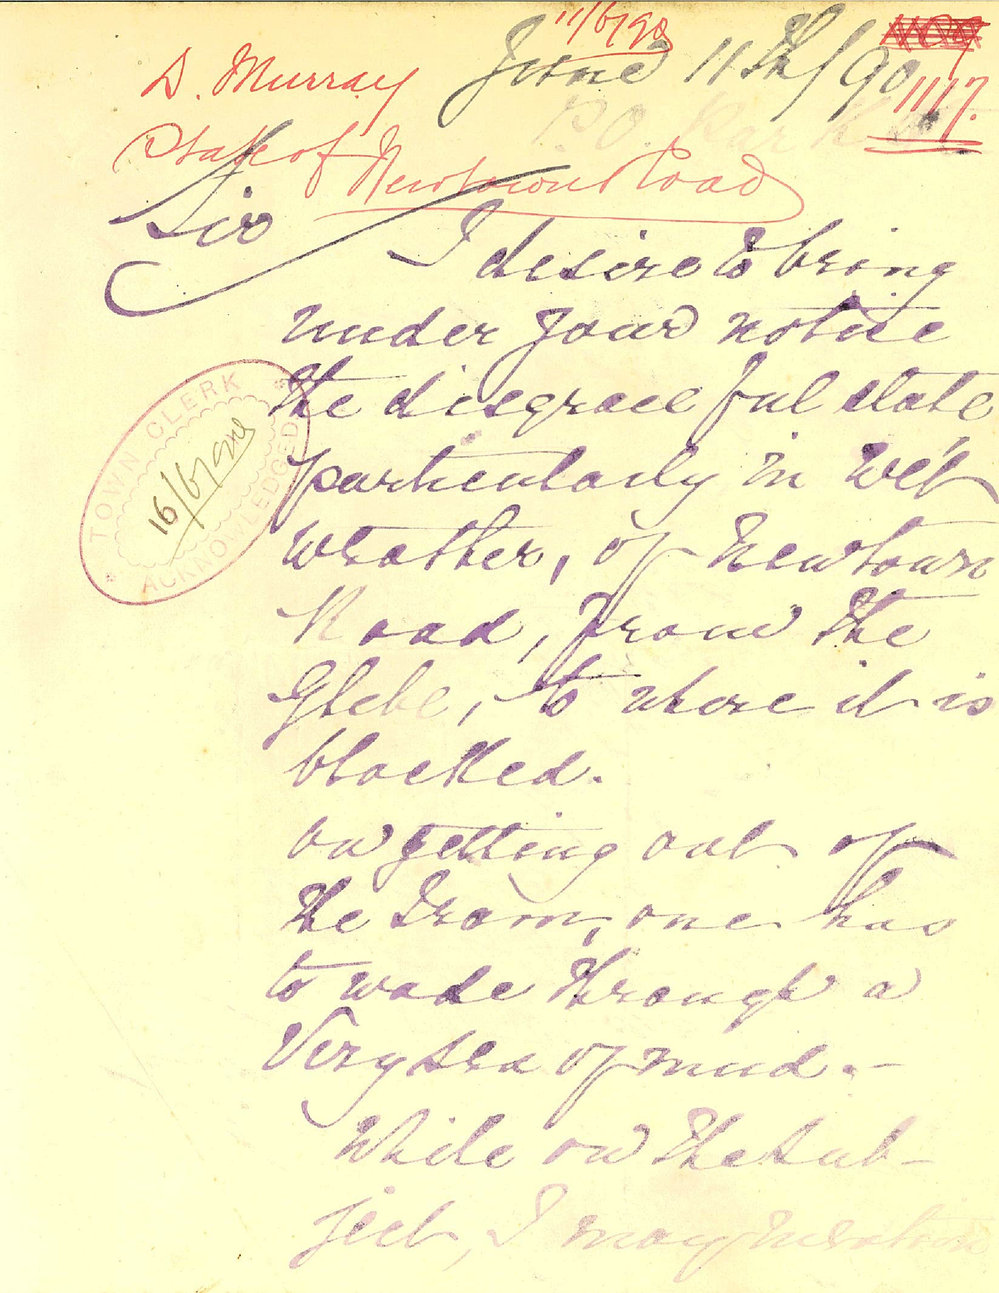 11/6/90
D. Murray
June 11th/90
1117.
P.O.
State of
Newtown Road
Sir
I desire to bring
under your notice
the disgraceful state
particularly in wet
weather, of Newtown
Road, from the
Glebe, to where it is
blocked.
on getting out of
the Tram, one has
to wade through a
Very sea of mud. -
While on the sub-
ject, I may mention
TOWN CLERK
16/6/90
ACKNOWLEDGED